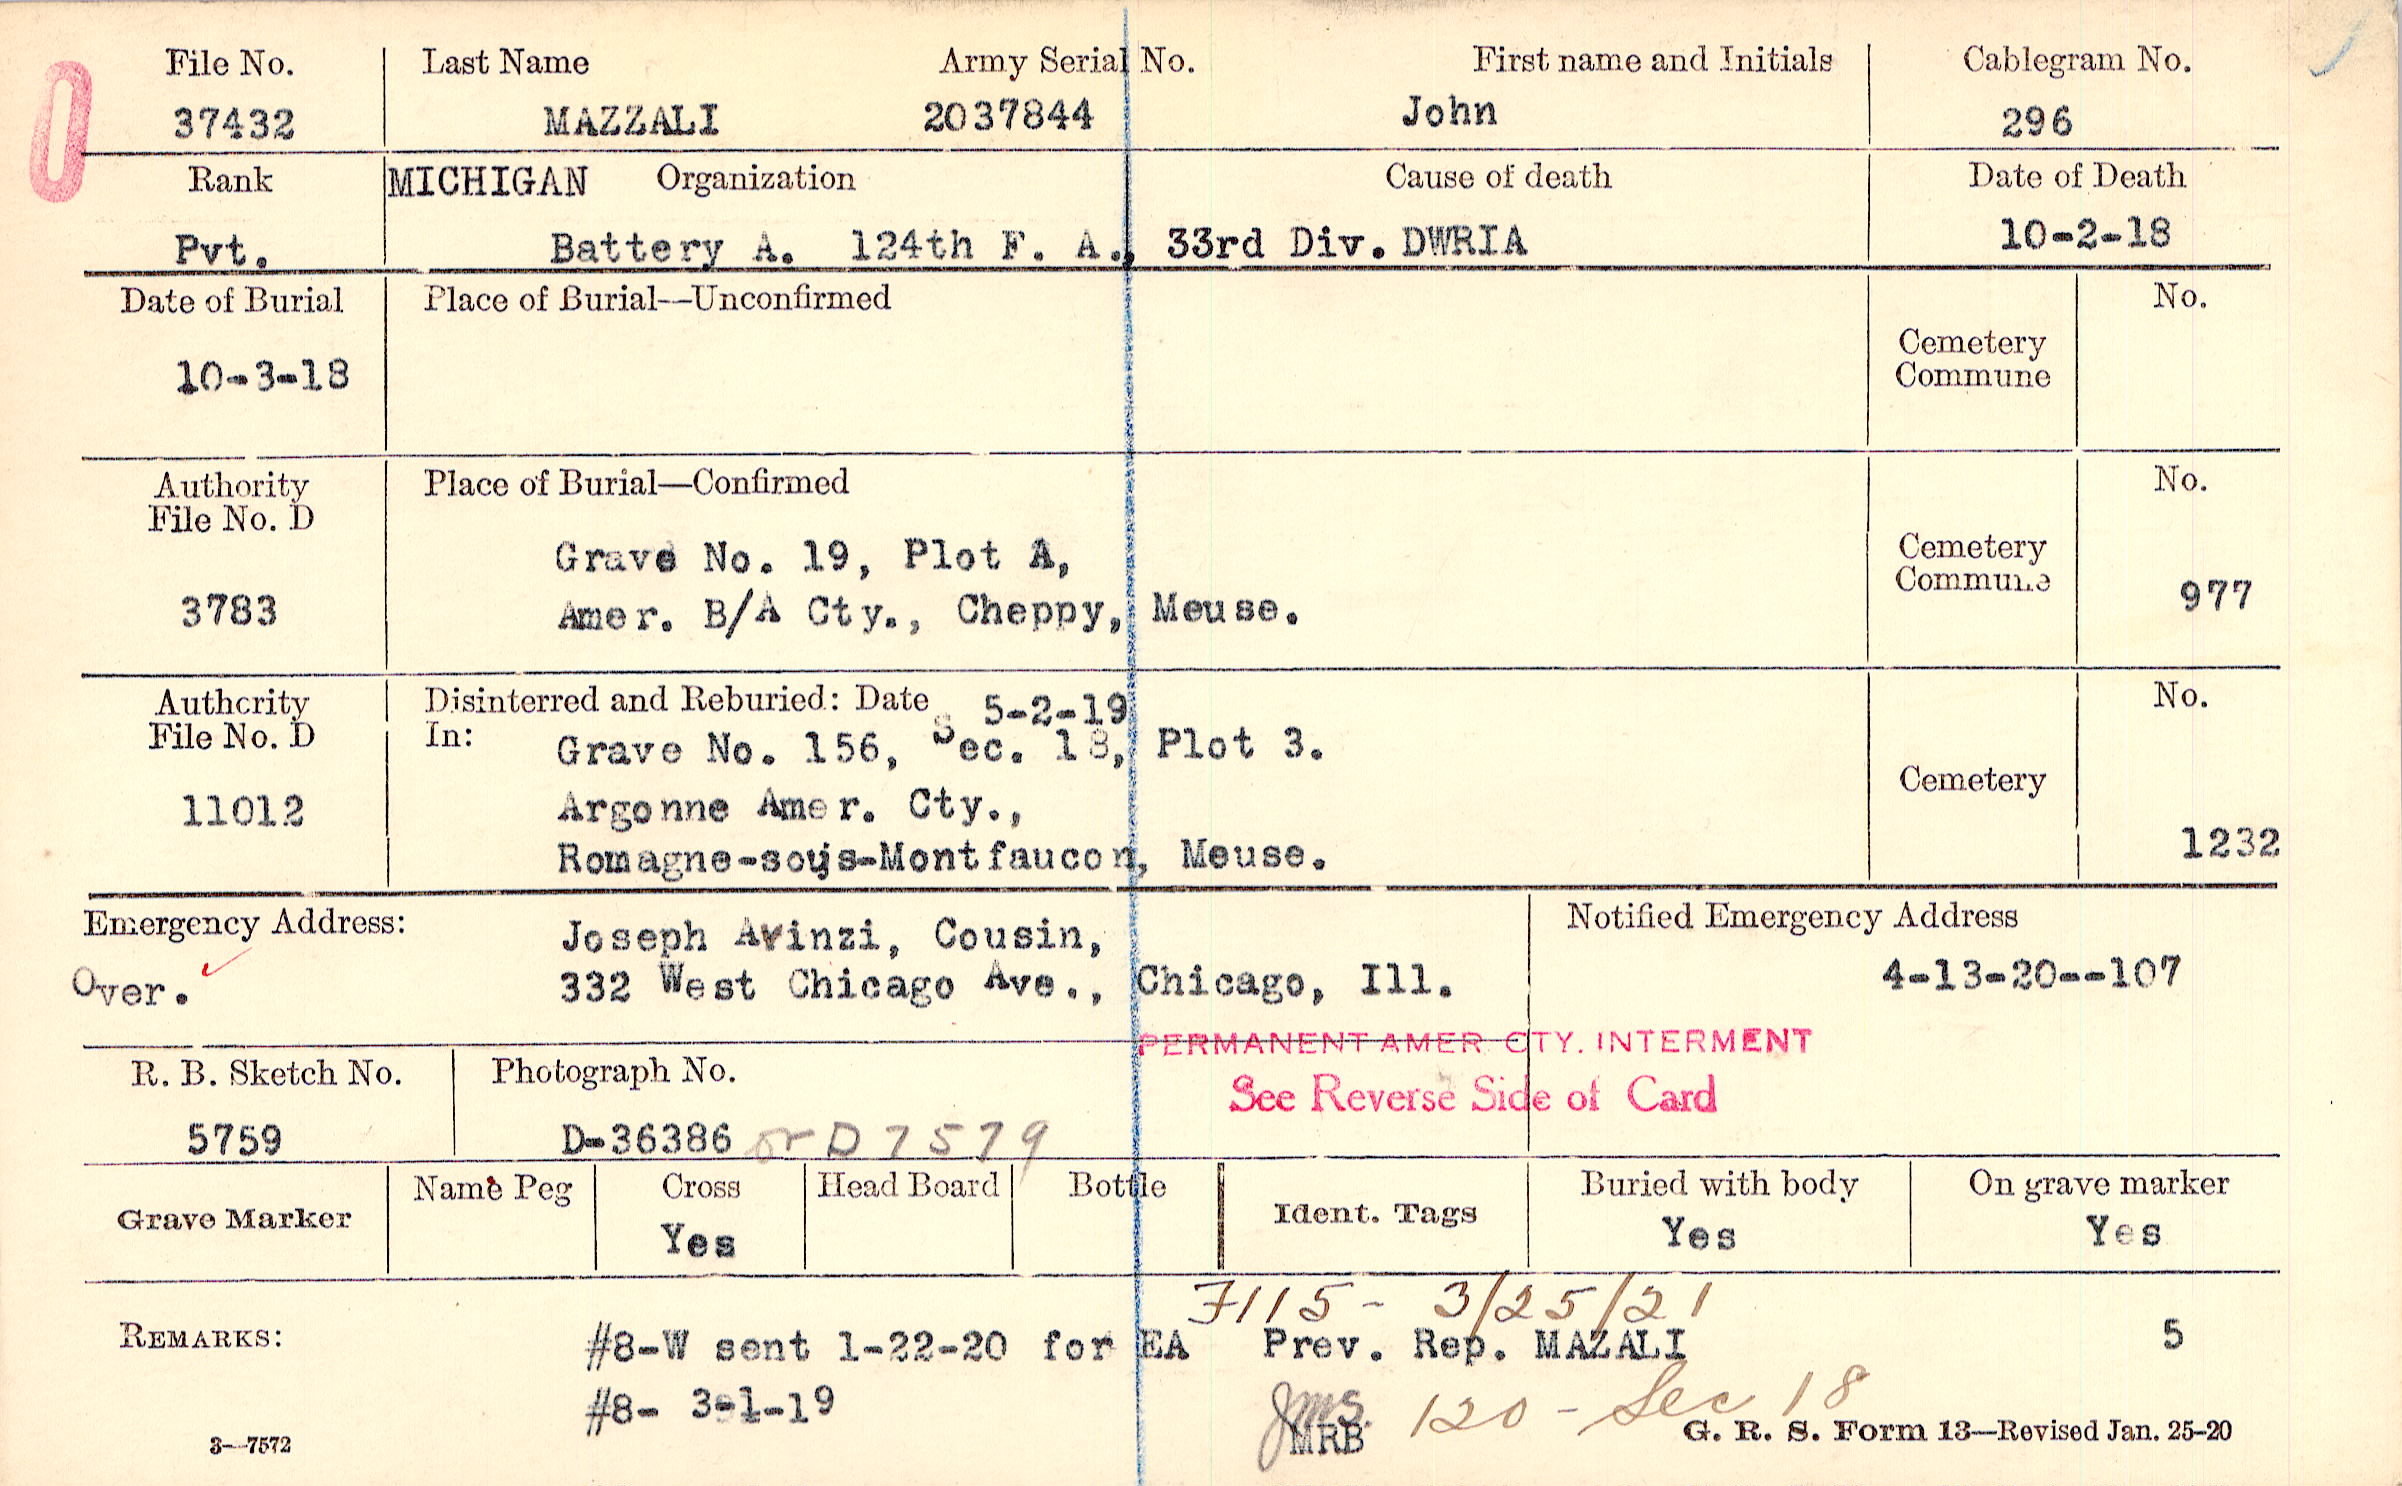 File No. Last Name Army Serial No. First name and Initials Cablegram No.
37432 MAZZALI 2037844 John 296
Rank MICHIGAN Organization Cause of death Date of Death
Pvt. Battery A. 124th F. A., 33rd Div. DWRIA 10-2-18
Date of Burial Place of Burial—Unconfirmed No.
Cemetery
Commune
10-3-18
Authority Place of Burial—Confirmed No.
File No. D
Grave No. 19, Plot A, Cemetery
Commune
3783 Amer. B/A Cty., Cheppy, Meuse. 977
Authority Disinterred and Reburied: Date 5-2-19 No.
File No. D In: Grave No. 156, Sec. 18, Plot 3.
Cemetery
11012 Argonne Amer. Cty.,
Romagne-sous-Montfaucon, Meuse. 1232
Emergency Address: Joseph Avinzi, Cousin, Notified Emergency Address
Over. 332 West Chicago Ave., Chicago, Ill. 4-13-20--107
PERMANENT AMER CTY. INTERMENT
R. B. Sketch No. Photograph No. See Reverse Side of Card
5759 D-36386 or D 7579
Grave Marker Name Peg Cross Head Board Bottle Ident. Tags Buried with body On grave marker
Yes Yes Yes
7115 - 3/25/21
REMARKS: #8-W sent 1-22-20 for EA Prev. Rep. MAZALI 5
#8- 3-1-19 Jms. 120 - Sec 18
MRB
3—7572 G. R. S. Form 13—Revised Jan. 25-20